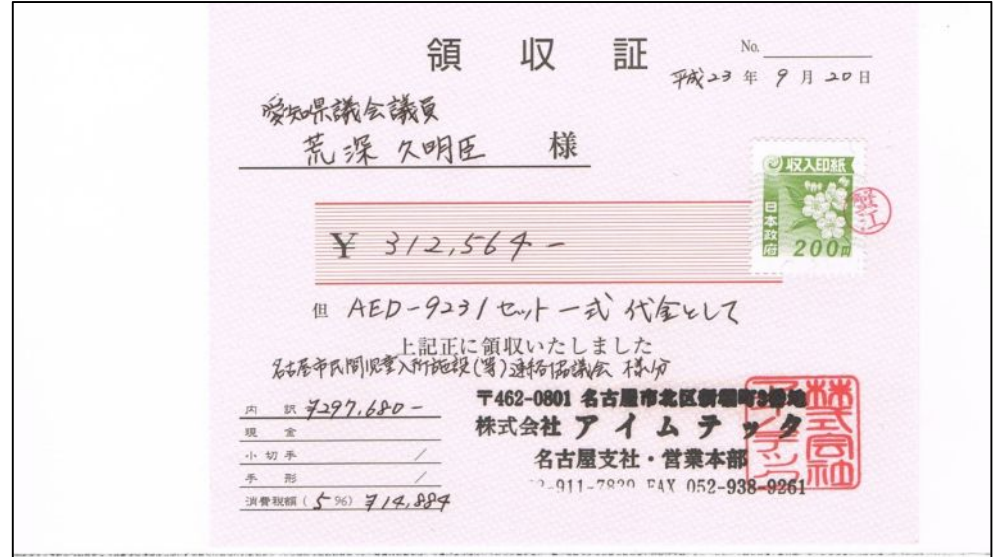 領収証
No.
平成23年9月20日
愛知県議会議員
荒深 久明臣 様
収入印紙
日本政府
200円
蟹江
¥ 312,564-
但 AED-9231セット一式 代金として
上記正に領収いたしました
名古屋市民間児童入所施設(等)連絡協議会 様分
内訳 ¥297,680-
現金
小切手 /
手形 /
消費税額(5%) ¥14,884
〒462-0801 名古屋市北区新堀町3番地
株式会社 アイムテック
名古屋支社・営業本部
-911-7820 FAX 052-938-9261